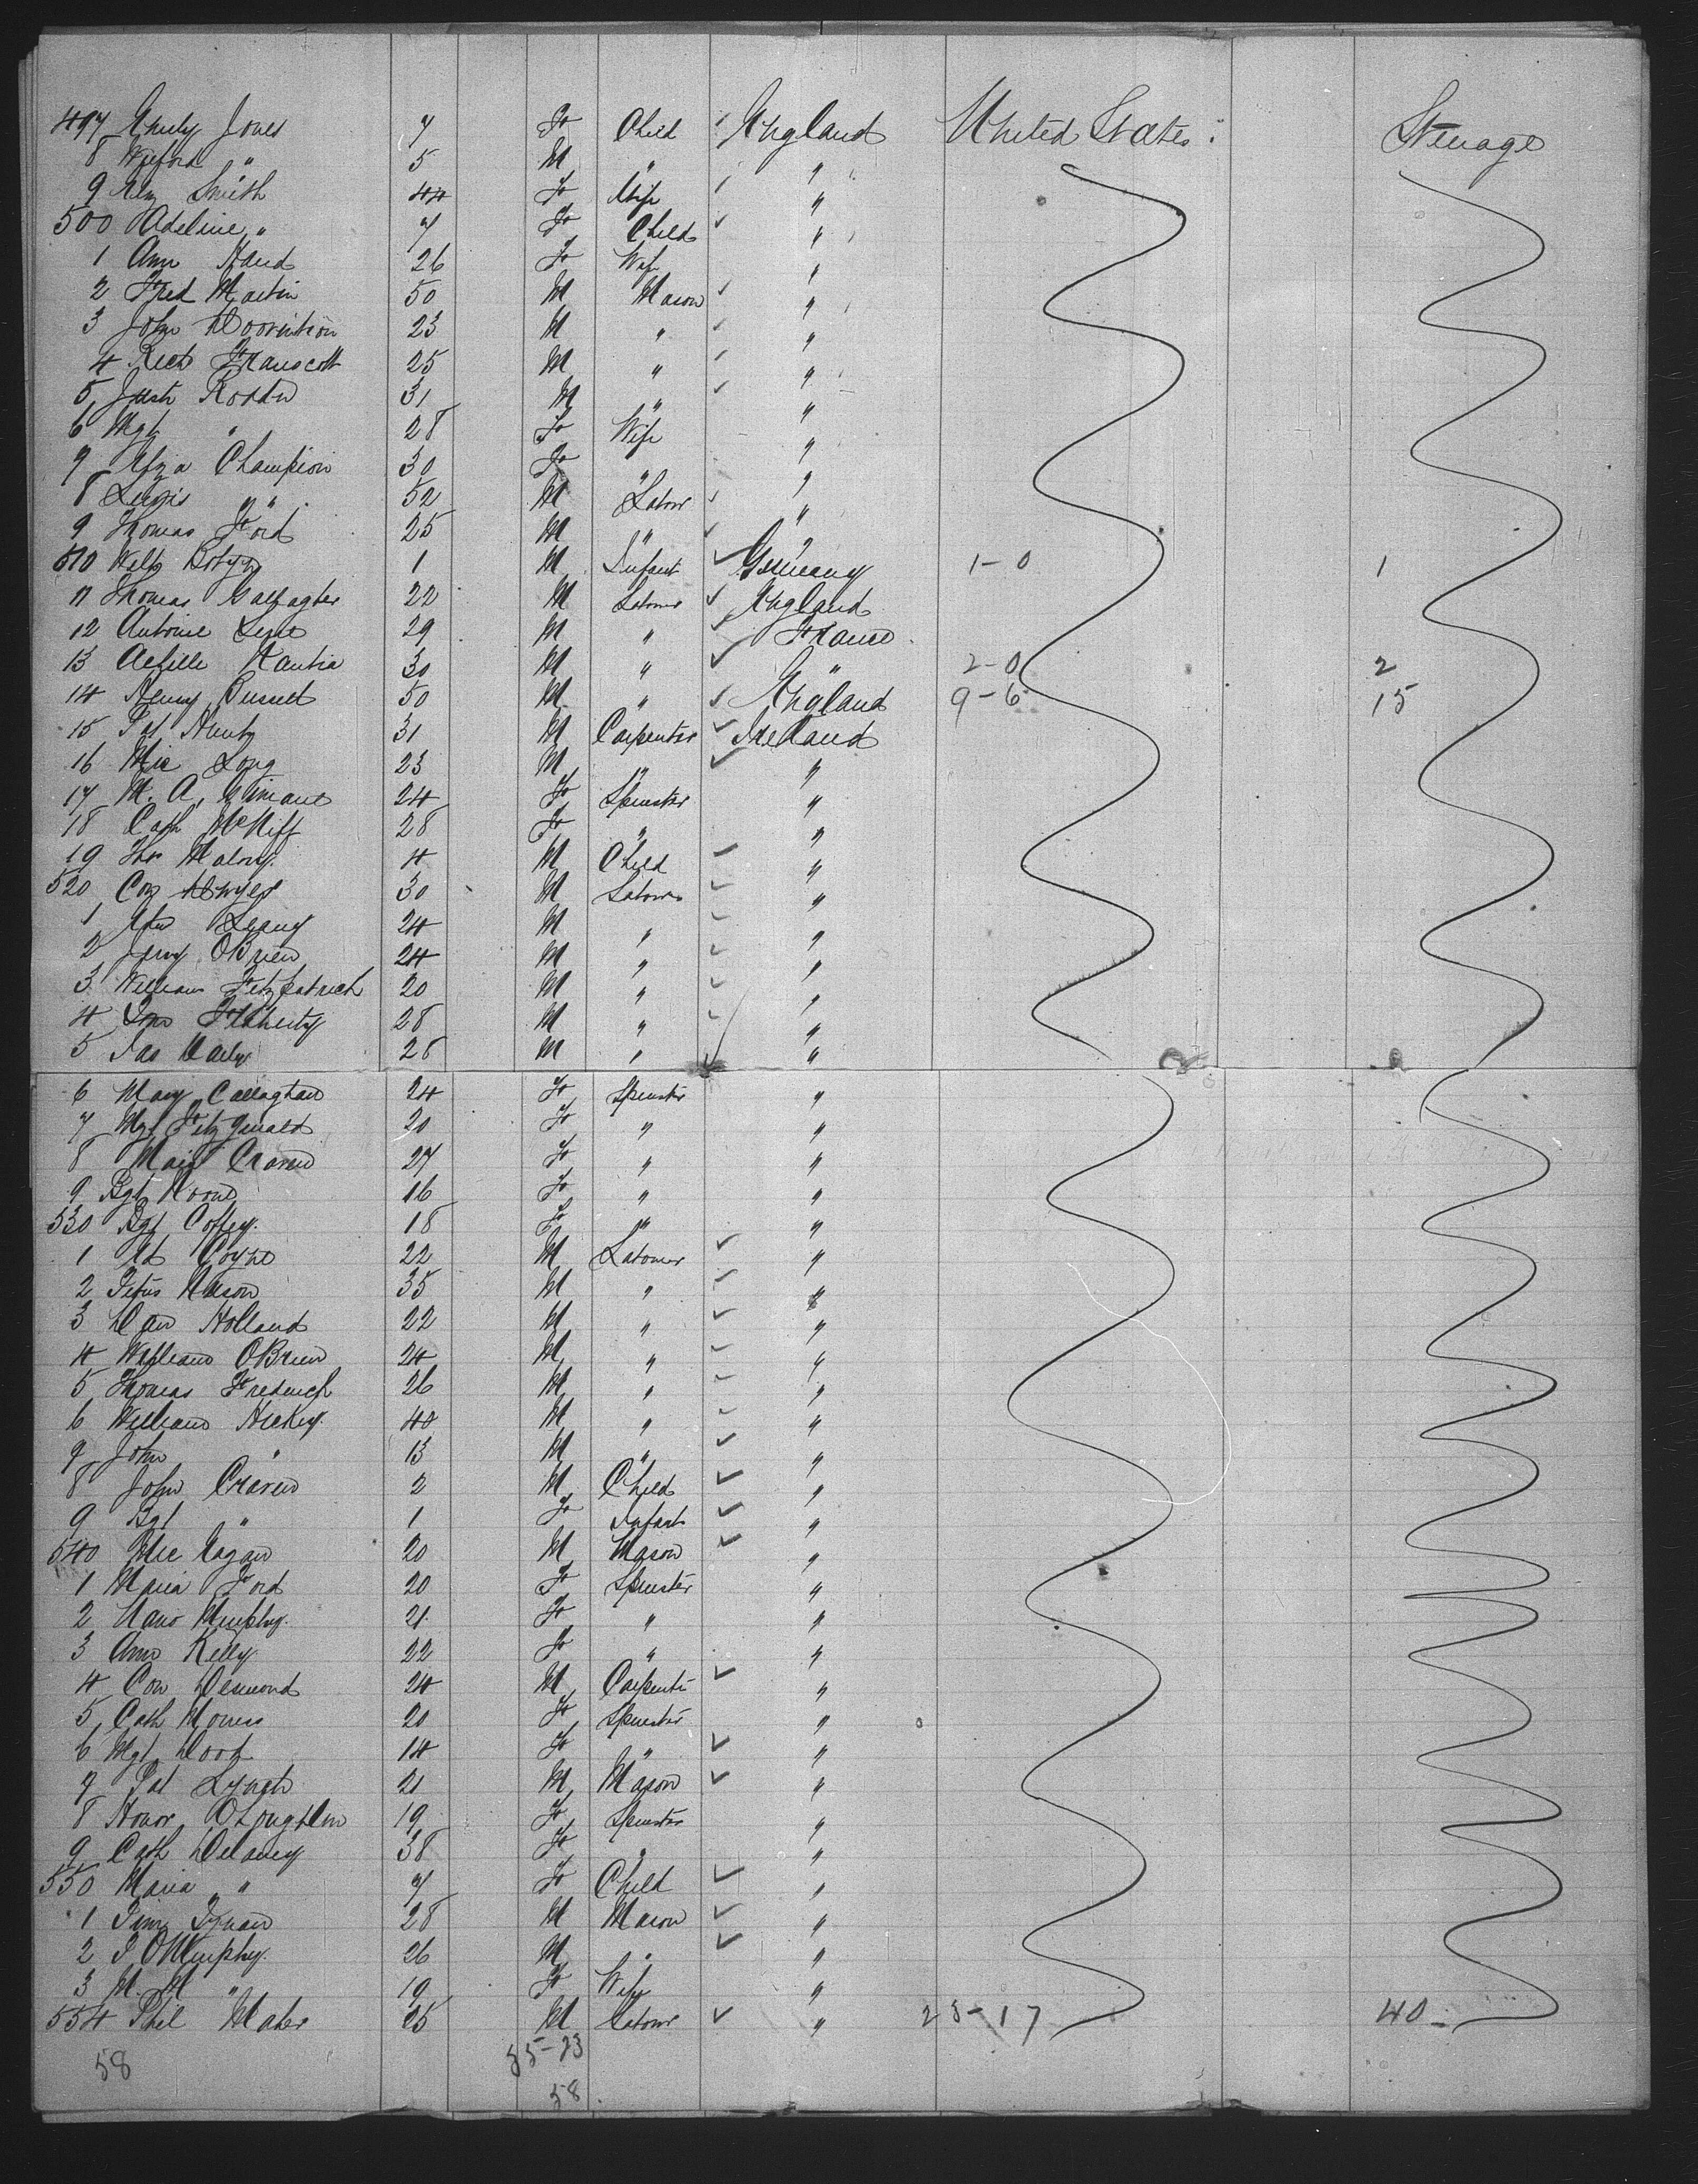 497 Emily Jones 7 F Child England United States. Steerage
8 " 5 M " "
9 Smith 44 F Wife "
500 Adeline " 7 F Child "
1 Ann Hand 26 F Wife "
2 Fred Martin 50 M Mason "
3 John 23 M " "
4 Richd 25 M " "
5 31 M " "
6 Mgt " 28 F Wife "
7 Eliza Champion 30 F " "
8 Lewis " 52 M Labour "
9 Thomas Ford 25 M " "
510 1 M Infant Germany 1-0 1
11 Thomas Gallagher 22 M Labourer England
12 Antoine 29 M " France
13 Achille 30 M " " 2-0 2
14 Henry 50 M " England 9-6 15
15 Pat 31 M Carpenter Ireland
16 Mic Long 23 M " "
17 M. A. 24 F Spinster "
18 Cath McNiff 28 F " "
19 Thos Malony 4 M Child "
520 Con Dwyer 30 M Labourer "
1 24 M " "
2 Jerry OBrien 24 M " "
3 William Fitzpatrick 20 M " "
4 Flaherty 28 M " "
5 Jas Daly 28 M " "
6 Mary Callaghan 24 F Spinster "
7 Mgt Fitzgerald 20 F " "
8 Craven 27 F " "
9 Bgt 16 F " "
530 Bgt Coffey. 18 F " "
1 Coyne 22 M Labourer "
2 35 M " "
3 Dan Holland 22 M " "
4 William OBrien 24 M " "
5 Thomas Frederick 26 M " "
6 William Hickey. 40 M " "
7 John " 13 M " "
8 John Craven 2 M Child "
9 Bgt " 1 F Infant "
540 Mic 20 M Mason "
1 Maria Ford 20 F Spinster "
2 Murphy. 21 F " "
3 Ann Kelly 22 F " "
4 Con Desmond 24 M Carpenter "
5 Cath 20 F Spinster "
6 Mgt 14 F " "
7 Pat Lynch 21 M Mason "
8 Honor OLoughlin 19 F Spinster "
9 Cath Delaney 38 F " "
550 Maria " 7 F Child "
1 28 M Mason "
2 Murphy. 26 M " "
3 M. M " 19 F Wife "
554 Phil Maher 25 M Labour " 23-17 40
58 35-23
58